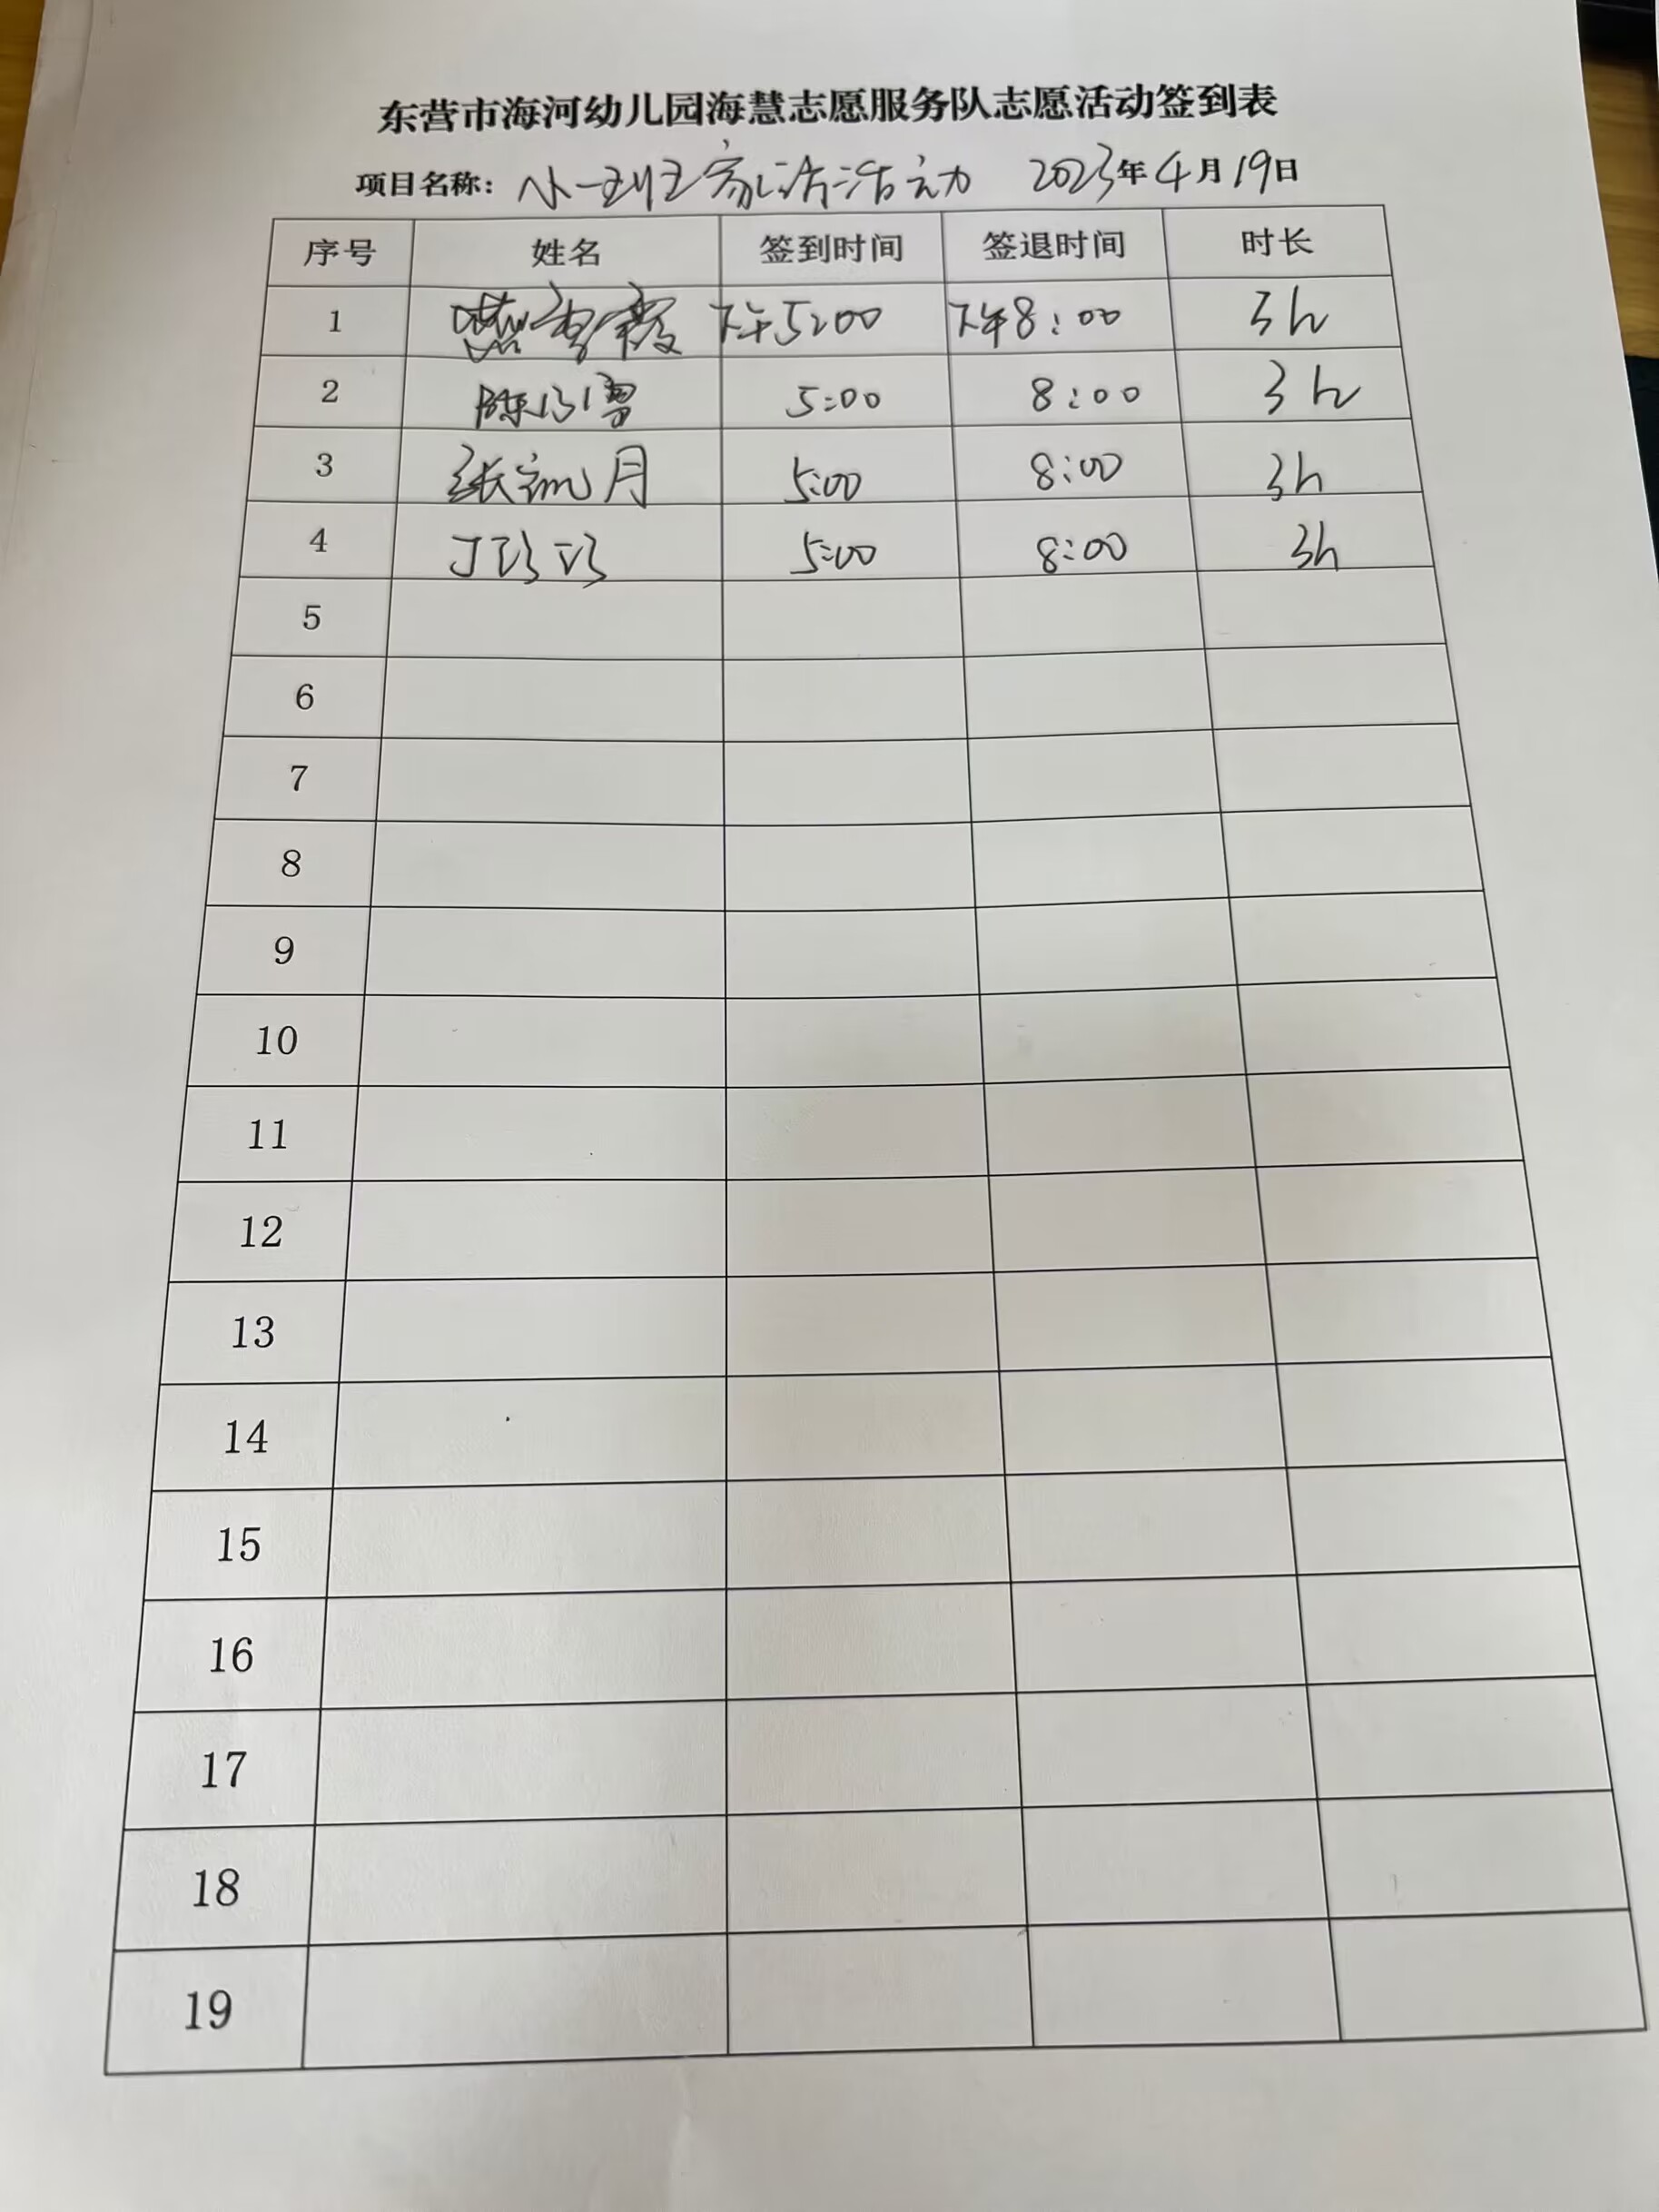 东营市海河幼儿园海慧志愿服务队志愿活动签到表
项目名称：小一班家访活动 2023年4月19日
序号 姓名 签到时间 签退时间 时长
1 下午5:00 下午8:00 3h
2 陈 雪 5:00 8:00 3h
3 张 月 5:00 8:00 3h
4 丁巧巧 5:00 8:00 3h
5
6
7
8
9
10
11
12
13
14
15
16
17
18
19